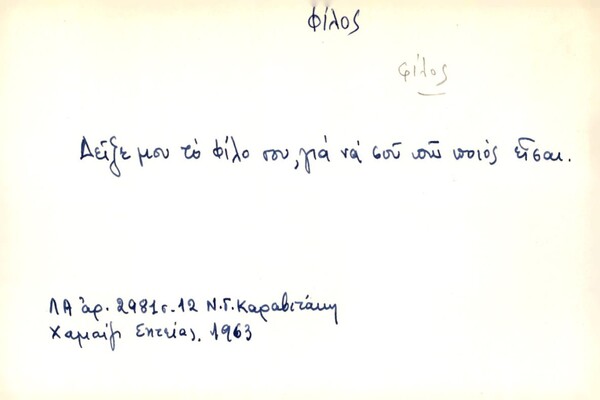 φίλος
φίλος
Δεῖξε μου τό φίλο σου, γιά νά σοῦ πῶ ποιός εἶσαι.
ΛΑ ἀρ. 2981 σ. 12 Ν. Γ. Καραβιτάκη
Χαμαίζι Σητείας, 1963